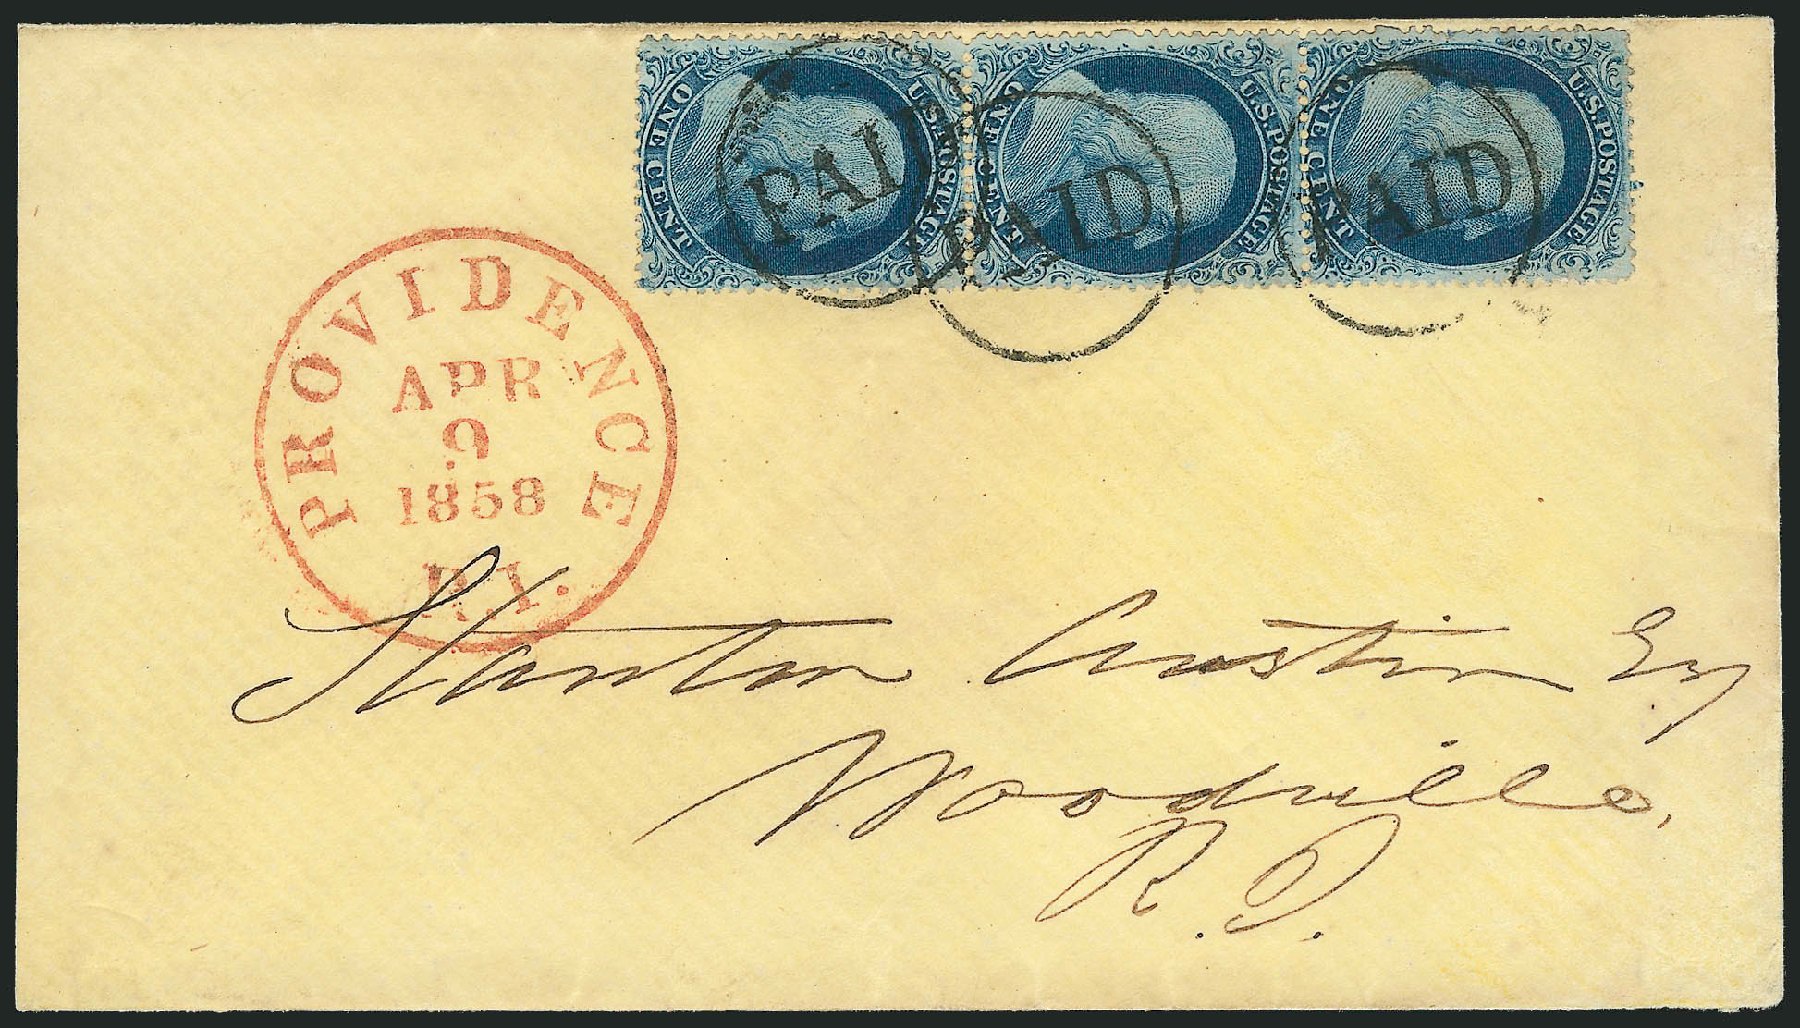 ONE CENT U.S. POSTAGE
ONE CENT U.S. POSTAGE
ONE CENT U.S. POSTAGE
PAID
PAID
PAID
PROVIDENCE
APR
9
1858
R.I.
Stanton Austin Esq
Woodville,
R. I.